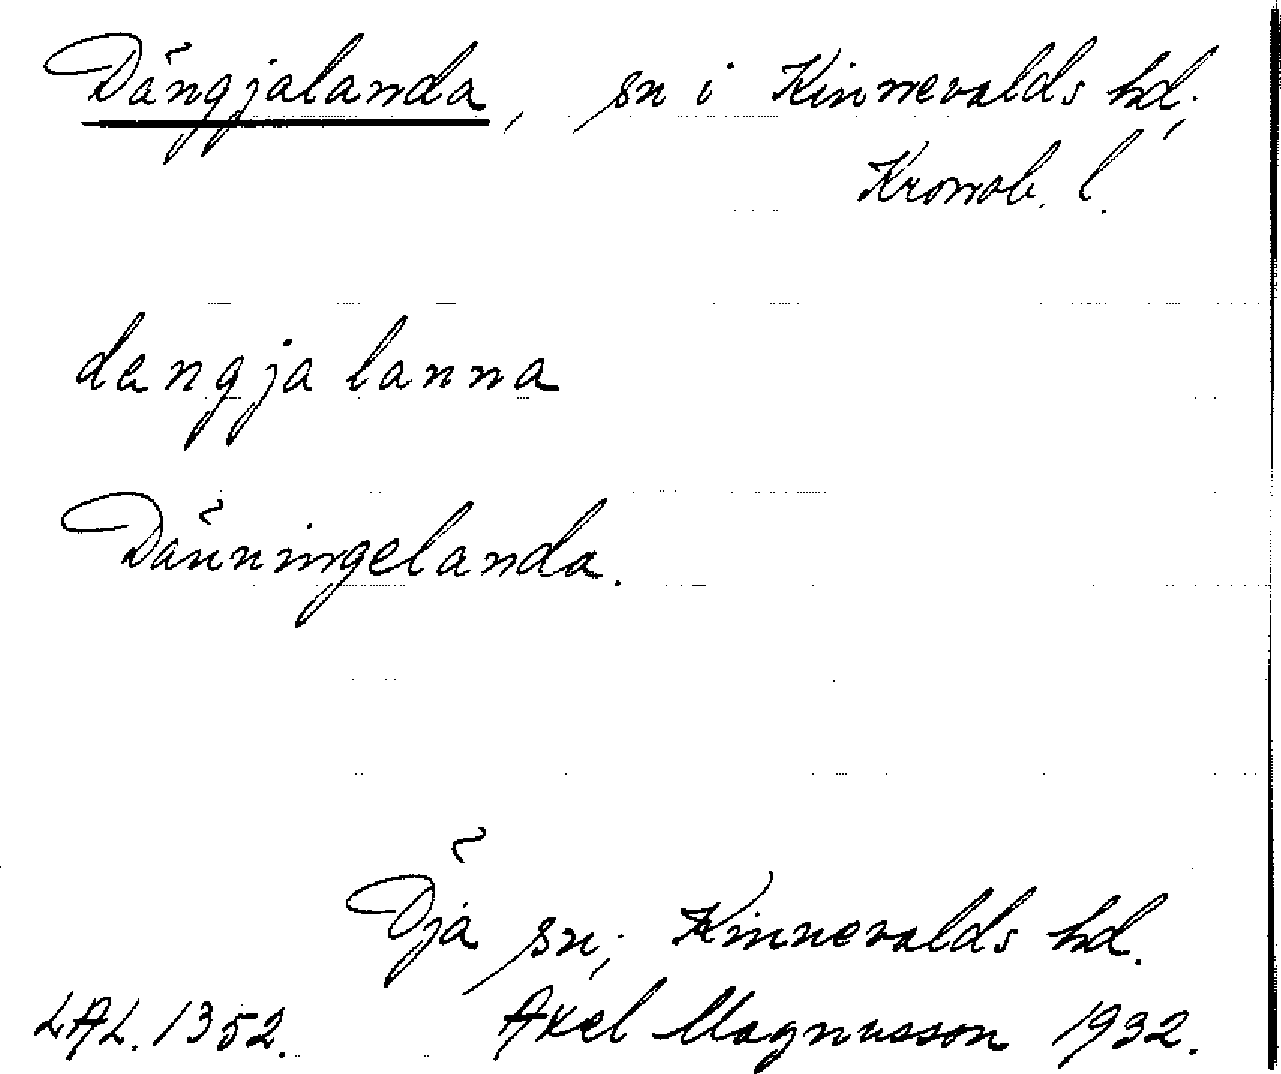 Dängjalanda, sn i Kinnevalds hd.,
Kronob. l.
dängja lanna
Dänningelanda.
Öja sn; Kinnevalds hd.
LAL. 1352. Axel Magnusson 1932.